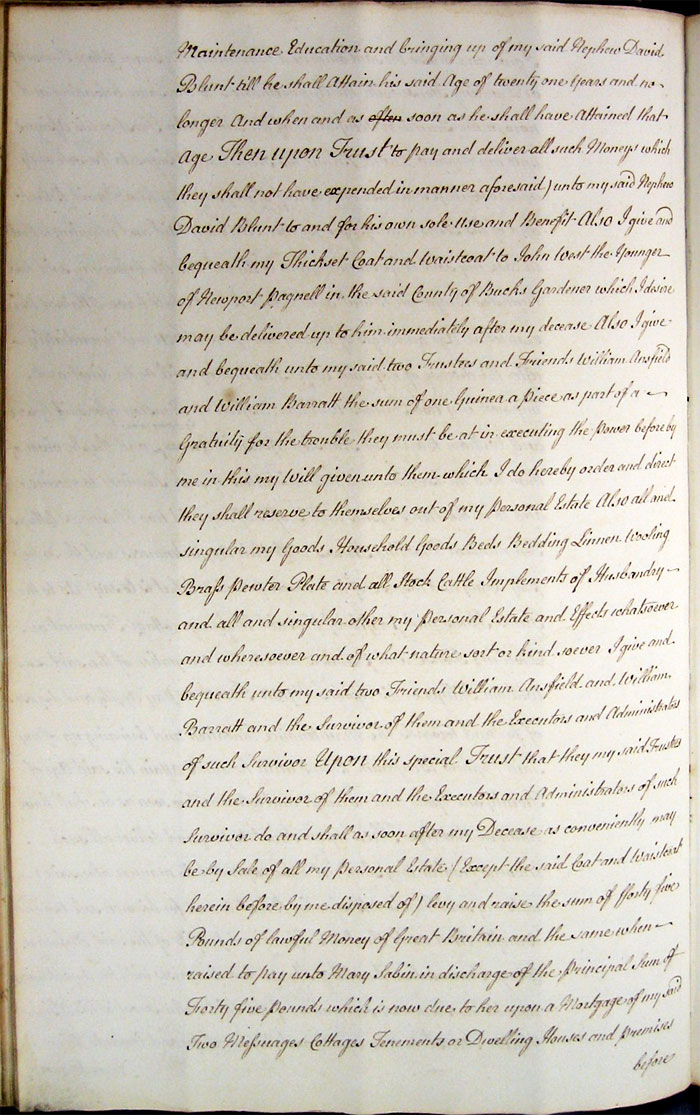 Maintenance Education and bringing up of my said Nephew David
Blunt till he shall Attain his said Age of twenty one Years and no
longer And when and as often soon as he shall have Attained that
Age Then upon Trust to pay and deliver all such Moneys which
they shall not have expended in manner aforesaid) unto my said Nephew
David Blunt to and for his own sole Use and Benefit Also I give and
bequeath my Thickset Coat and Waistcoat to John West the Younger
of Newport Pagnell in the said County of Bucks Gardener which I desire
may be delivered up to him immediately after my decease Also I give
and bequeath unto my said two Trustees and Friends William Ansfield
and William Barratt the sum of one Guinea a piece as part of a
Gratuity for the trouble they must be at in executing the Power before by
me in this my Will given unto them which I do hereby order and direct
they shall reserve to themselves out of my Personal Estate Also all and
singular my Goods Household Goods Beds Bedding Linnen Wooling
Brass Pewter Plate and all Stock Cattle Implements of Husbandry
and all and singular other my Personal Estate and Effects whatsoever
and wheresoever and of what nature sort or kind soever I give and
bequeath unto my said two Friends William Ansfield and William
Barratt and the Survivor of them and the Executors and Administrators
of such Survivor Upon this special Trust that they my said Trustees
and the Survivor of them and the Executors and Administrators of such
Survivor do and shall as soon after my Decease as conveniently may
be by Sale of all my Personal Estate (Except the said Coat and Waistcoat
herein before by me disposed of) levy and raise the sum of fforty five
Pounds of lawful Money of Great Britain and the same when
raised to pay unto Mary Sabin in discharge of the Principal Sum of
Forty five Pounds which is now due to her upon a Mortgage of my said
Two Messuages Cottages Tenements or Dwelling Houses and Premises
before